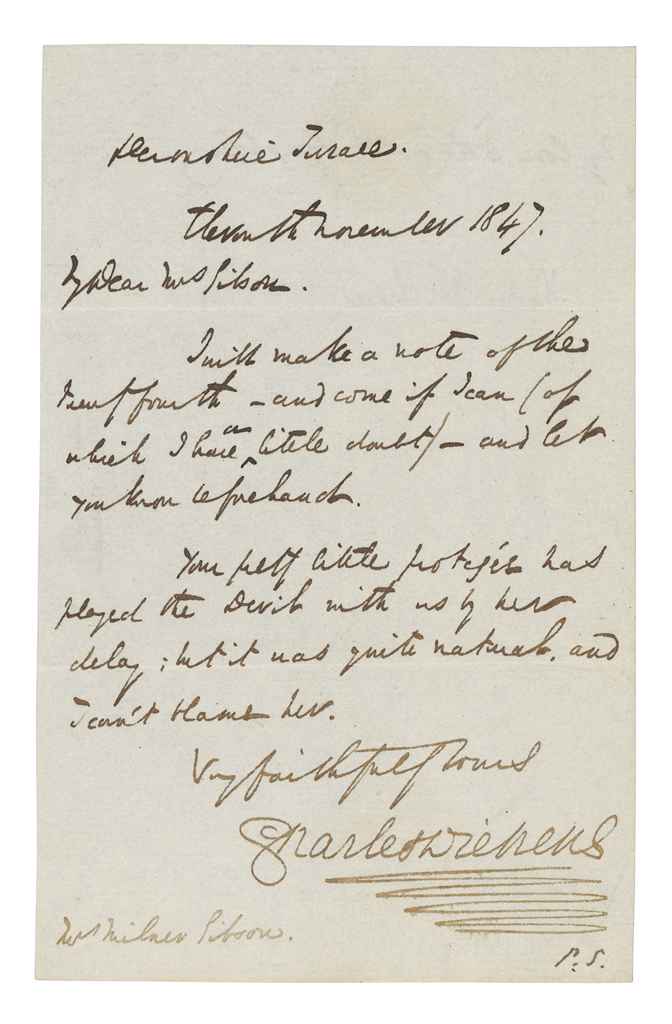 Devonshire Terrace.
Eleventh November 1847.
My Dear Mrs Gibson.
I will make a note of the
Twenty fourth – and come if I can (of
which I have a little doubt) – and let
you know beforehand.
Your pretty little protegée has
played the Devil with us by her
delay; but it was quite natural, and
I can't blame her.
Very faithfully Yours
Charles Dickens
Mrs Milner Gibson.
P.S.